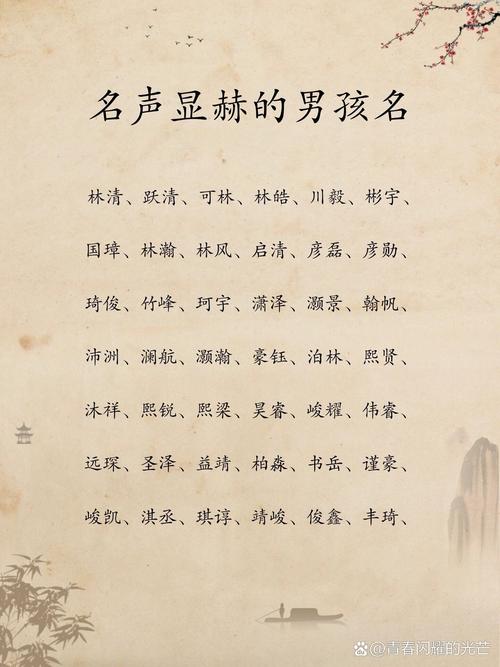 名声显赫的男孩名
林清、跃清、可林、林皓、川毅、彬宇、
国璋、林瀚、林风、启清、彦磊、彦勋、
琦俊、竹峰、珂宇、潇泽、灏景、翰帆、
沛洲、澜航、灏瀚、豪钰、泊林、熙贤、
沐祥、熙锐、熙梁、昊睿、峻耀、伟睿、
远琛、圣泽、益靖、柏淼、书岳、谨豪、
峻凯、淇丞、琪谆、靖峻、俊鑫、丰琦、
@青春闪耀的光芒